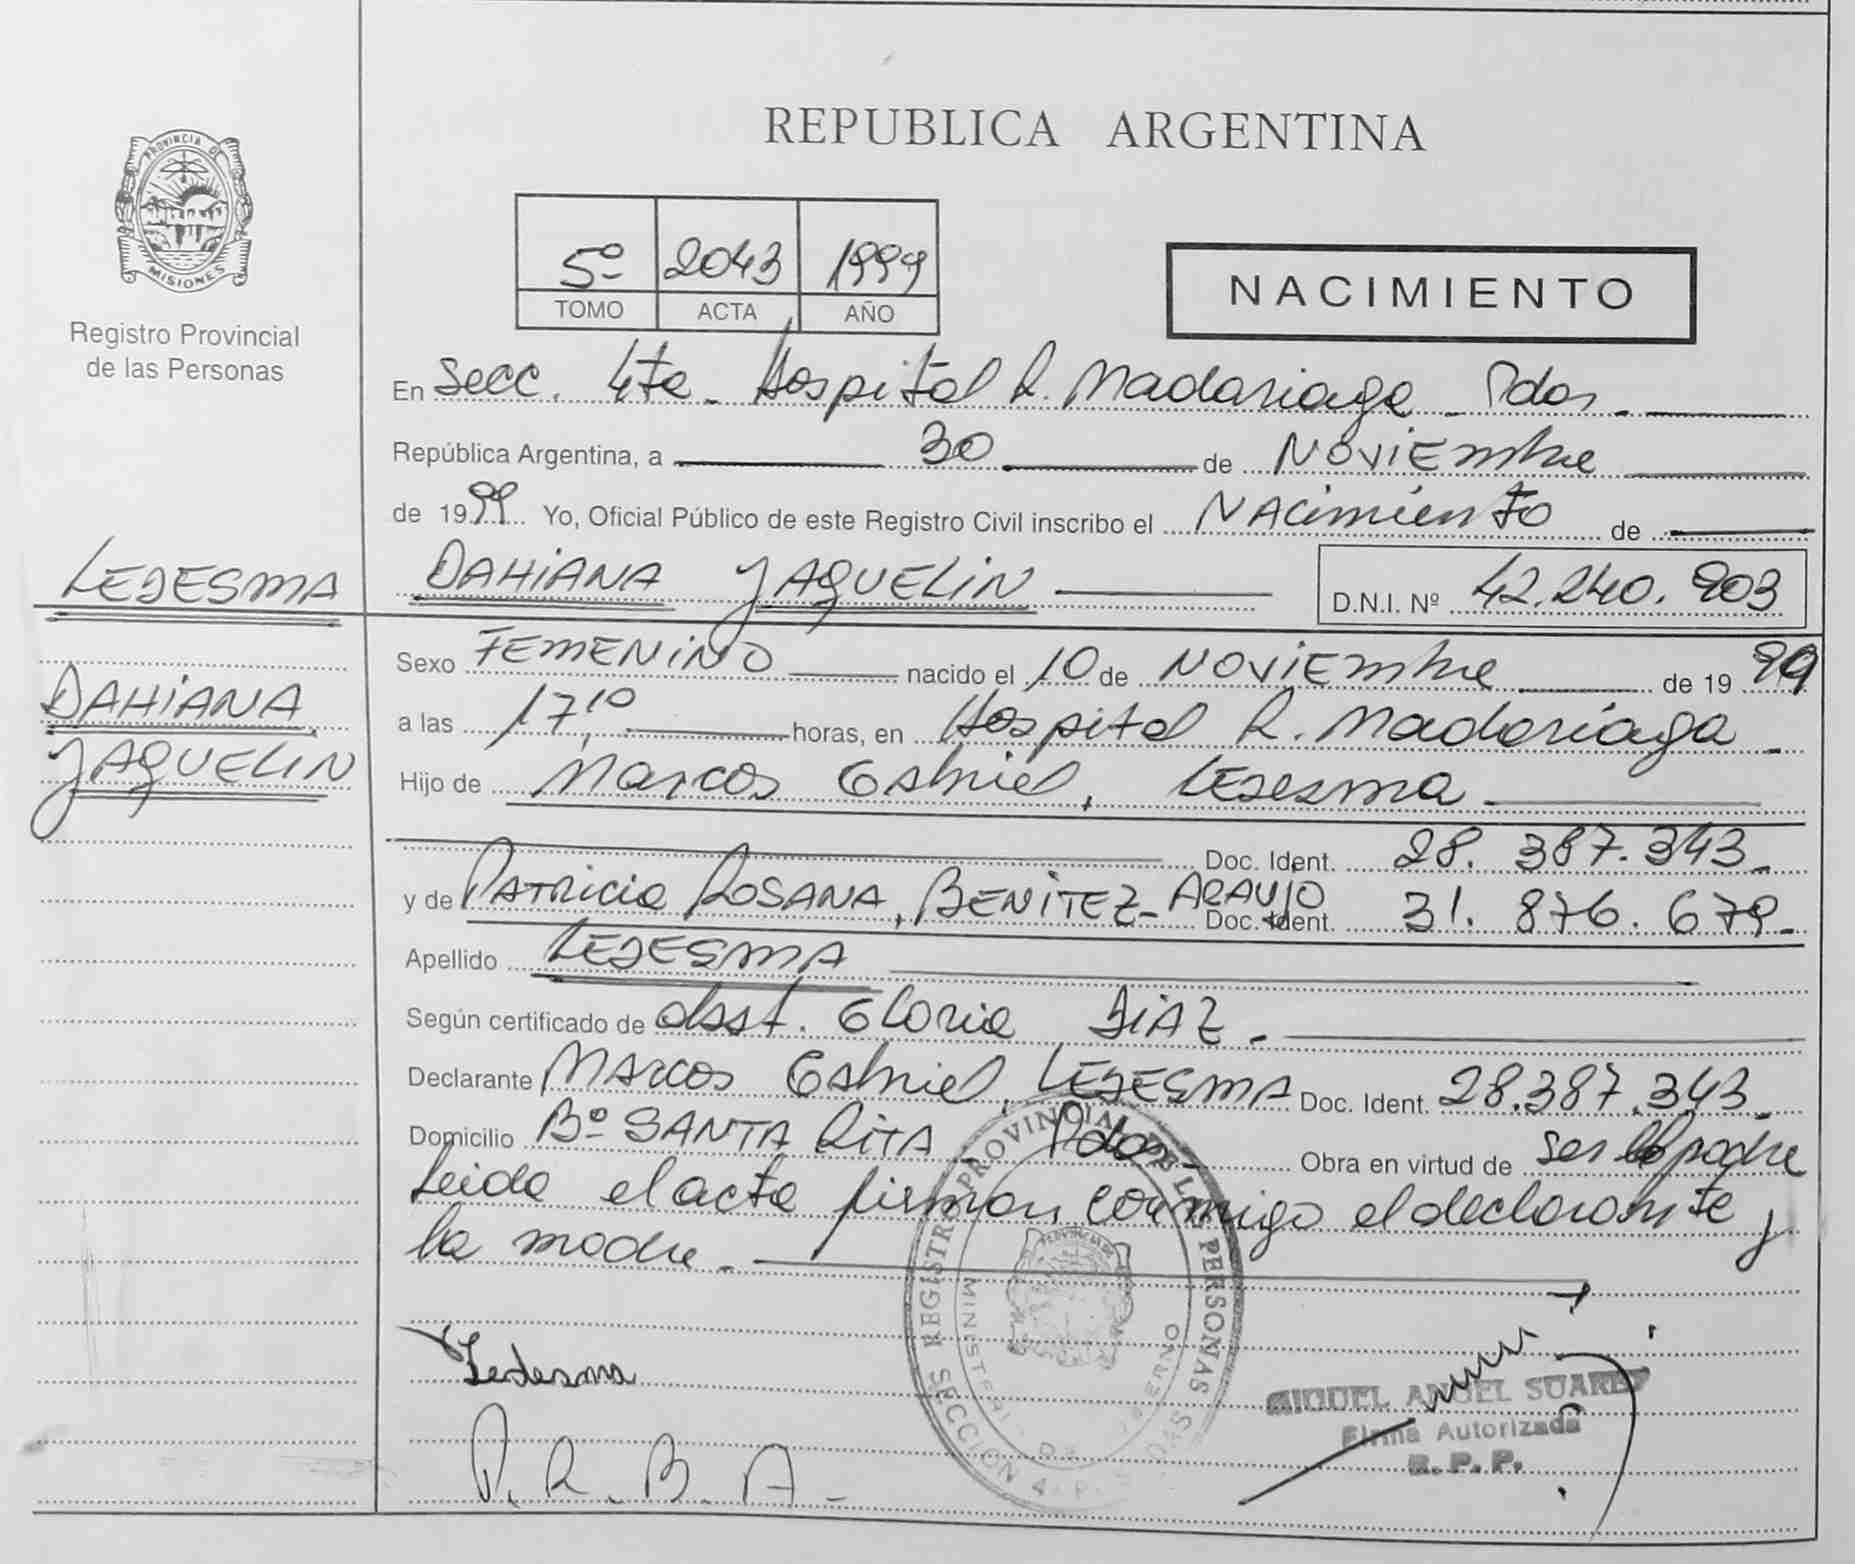 REPUBLICA ARGENTINA
PROVINCIA DE MISIONES
Registro Provincial
de las Personas
5º 2043 1999
TOMO ACTA AÑO
NACIMIENTO
En Secc. 4ta. Hospital R. Madariaga - Pdas.
República Argentina, a 30 de NOViEmbre
de 1999 Yo, Oficial Público de este Registro Civil inscribo el NAcimiento de
LEDESMA DAHiANA YAQUELiN D.N.I. Nº 42.240.903
DAHiANA
YAQUELiN
Sexo FEMENiNO nacido el 10 de NOViEmbre de 1999
a las 17,10 horas, en Hospital R. Madariaga -
Hijo de Marcos Gabriel, LEDESMA
Doc. Ident. 28.387.343.-
y de PATRicia ROSANA, BENiTEZ-ARAUJO Doc. Ident. 31.876.679.-
Apellido LEDESMA
Según certificado de obst. Gloria DiAZ.-
Declarante MARCOS Gabriel, LEDESMA Doc. Ident. 28.387.343.-
Domicilio Bº SANTA RiTA Pdas- Obra en virtud de ser el padre
Leida el acta firman conmigo el declarante y
la madre.-
REGISTRO PROVINCIAL DE LAS PERSONAS
SECCION 4
PROVINCIA DE
Ledesma
P. R. B. A-
MIGUEL ANGEL SUAREZ
Firma Autorizada
R. P. P.